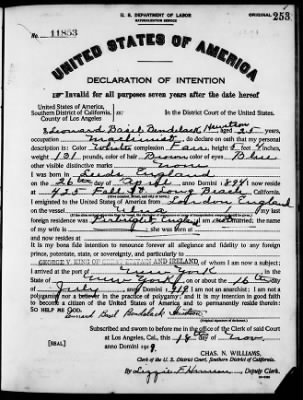 U. S. DEPARTMENT OF LABOR
NATURALIZATION SERVICE
ORIGINAL 253
No. 11853
UNITED STATES OF AMERICA
DECLARATION OF INTENTION
Invalid for all purposes seven years after the date hereof
United States of America,
Southern District of California,
County of Los Angeles
ss:
In the District Court of the United States.
I, Leonard Basil Bendelack Hewetson, aged 25 years,
occupation Machinist, do declare on oath that my personal
description is: Color White, complexion Fair, height 5 feet inches,
weight 131 pounds, color of hair Brown, color of eyes Blue
other visible distinctive marks None
I was born in Leeds England
on the 26 day of April, anno Domini 1894; I now reside
at 425 Long Beach, California.
I emigrated to the United States of America from London England
on the vessel ; my last
foreign residence was England; I am not married; the name
of my wife is ; she was born at
and now resides at
It is my bona fide intention to renounce forever all allegiance and fidelity to any foreign
prince, potentate, state, or sovereignty, and particularly to
GEORGE V, KING OF GREAT BRITAIN AND IRELAND, of whom I am now a subject;
I arrived at the port of New York, in the
State of New York, on or about the 16th day
of July, anno Domini 1919; I am not an anarchist; I am not a
polygamist nor a believer in the practice of polygamy; and it is my intention in good faith
to become a citizen of the United States of America and to permanently reside therein:
SO HELP ME GOD.
Leonard Basil Bendelack Hewetson
(Original signature of declarant.)
Subscribed and sworn to before me in the office of the Clerk of said Court
at Los Angeles, Cal., this 18th day of Nov.
anno Domini 1919.
[SEAL]
CHAS. N. WILLIAMS,
Clerk of the U. S. District Court, Southern District of California.
By Lizzie , Deputy Clerk.